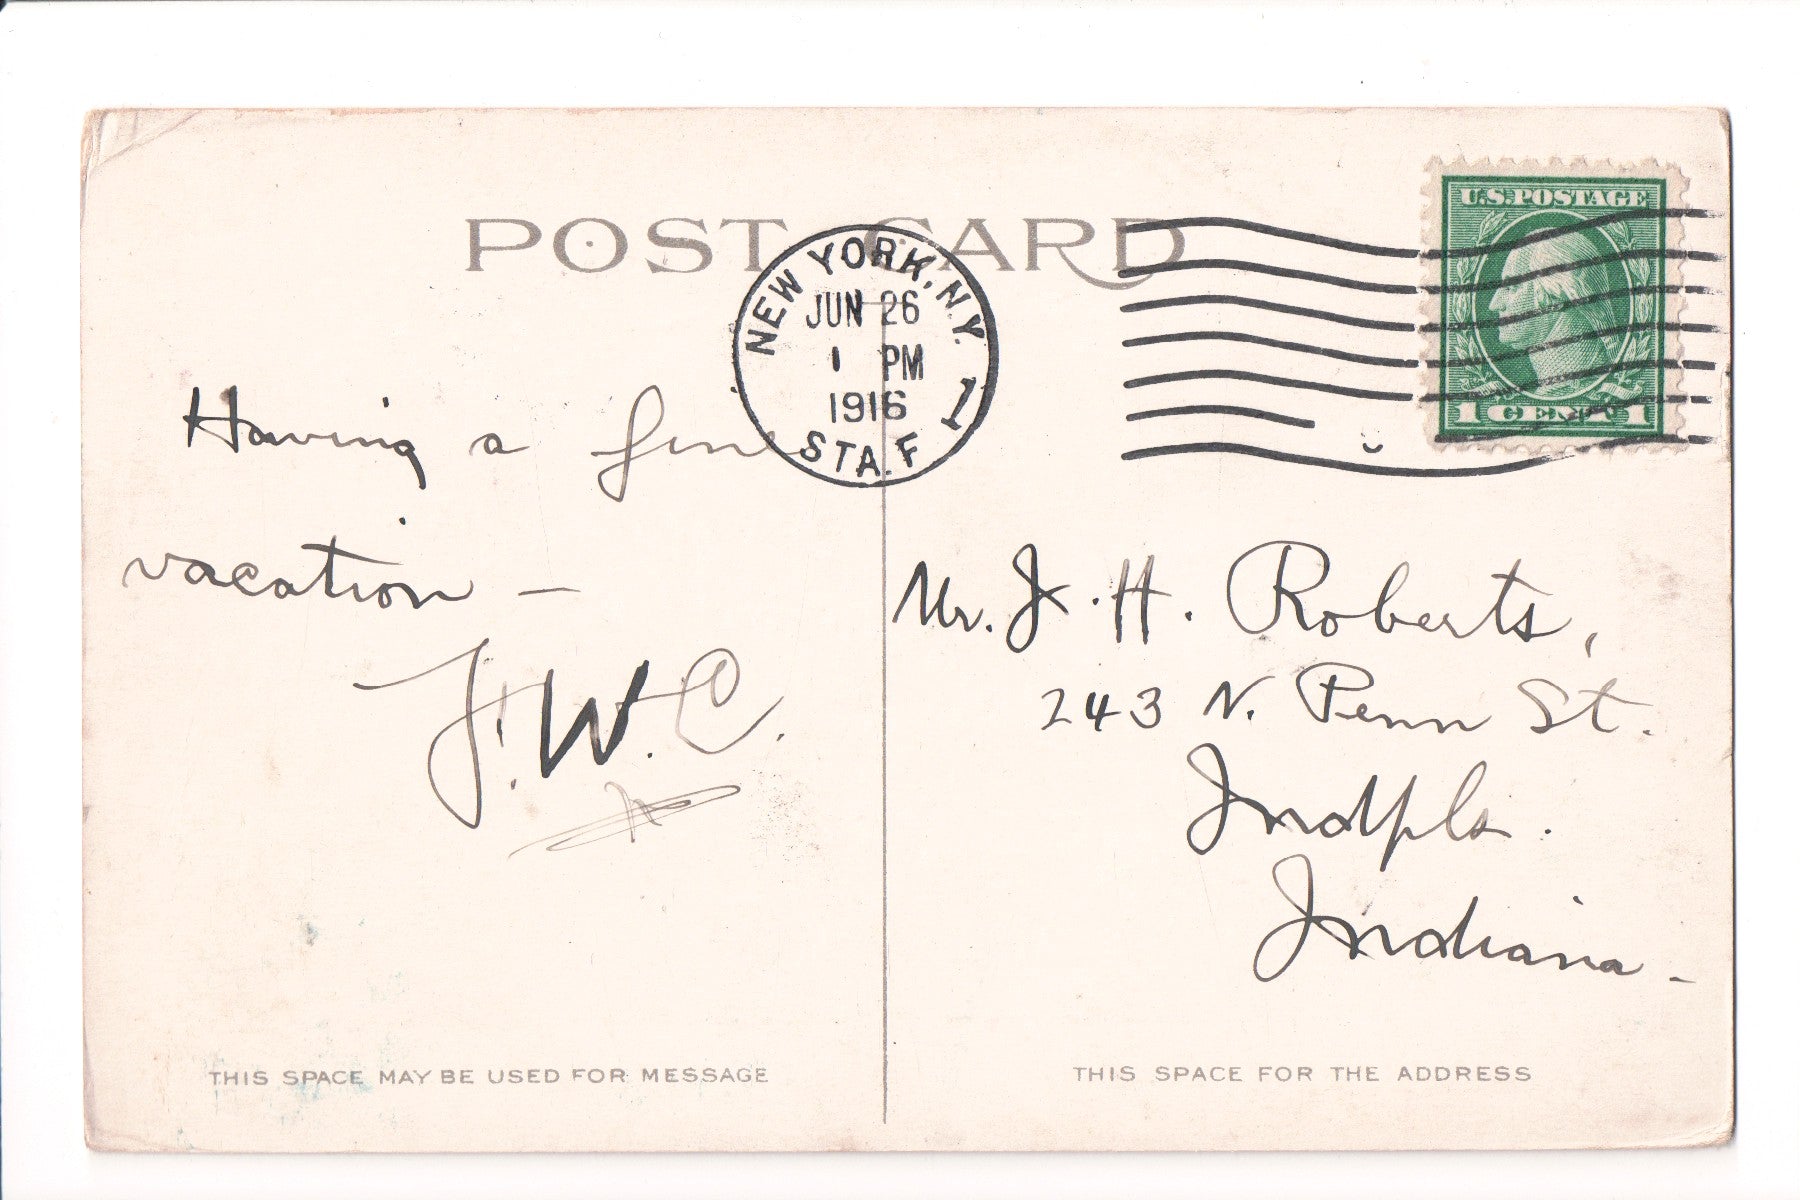 POST CARD
NEW YORK, N.Y.
JUN 26
1 PM
1916
STA. F
1
U.S. POSTAGE
1 CENT 1
Having a fine
vacation –
J.W.C.
Mr. J. H. Roberts,
243 N. Penn St.
Indpls.
Indiana –
THIS SPACE MAY BE USED FOR MESSAGE
THIS SPACE FOR THE ADDRESS